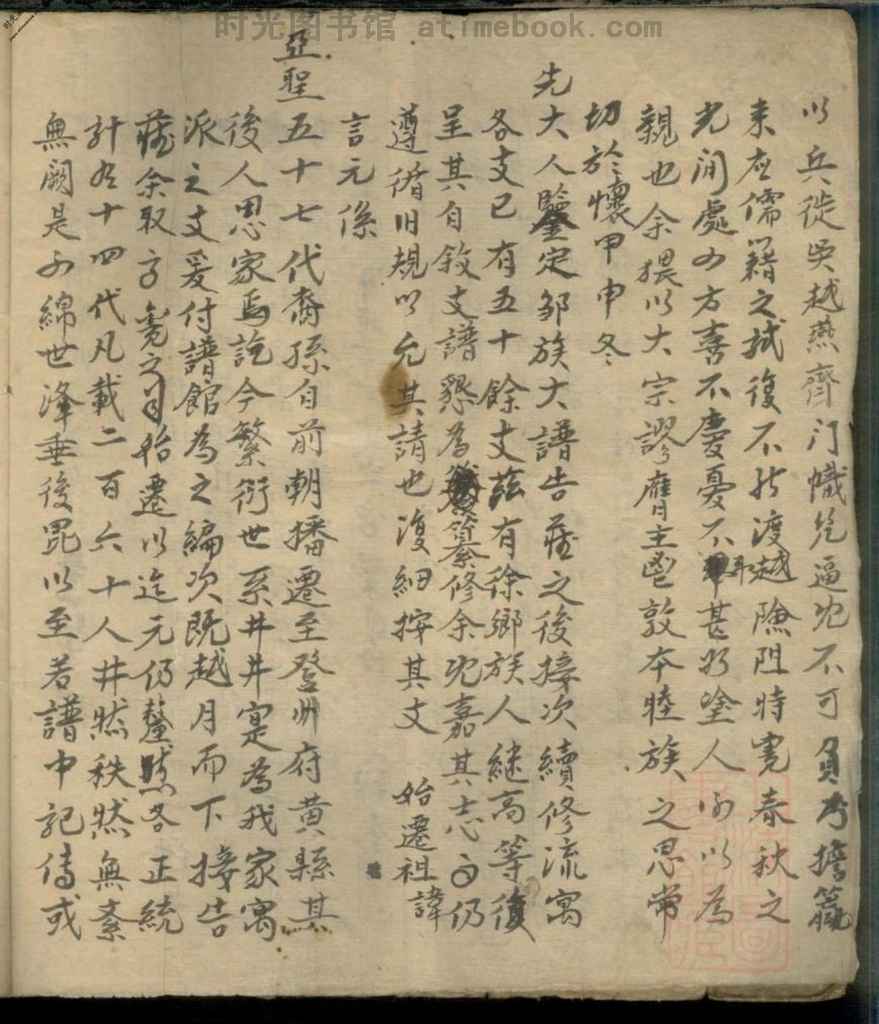 时光图书馆 atimebook.com
以兵徙吳越燕齊门幟岌逼

况不可負考擔簦
来应儒籍之拭復不能渡越險阻時寬春秋之
光闭處为方喜不慶憂不甚於塗人为以為
親也余猥以大宗謬膺主鬯敦本睦族之思常
切於懷甲申冬
先大人鑒定邹族大譜告蕆之後接次續修流寓
各支已有五十餘支兹有徐鄉族人继高等復
呈其自敘支譜懇為纂修余既嘉其志而仍
遵循旧規以允其請也復細按其文 始遷祖諱
言元係
亞聖五十七代裔孫自前朝播遷至登州府黄縣其
後人思家焉訖今繁衍世系井井寔為我家寓
派之支爰付譜館為之編次既越月而下接告
蕆余取而竟之自始遷以迄元仍釐然各正統
計為十四代凡載二百六十人井然秩然無紊
無闕是为綿世澤垂後昆以至若譜中記傳或